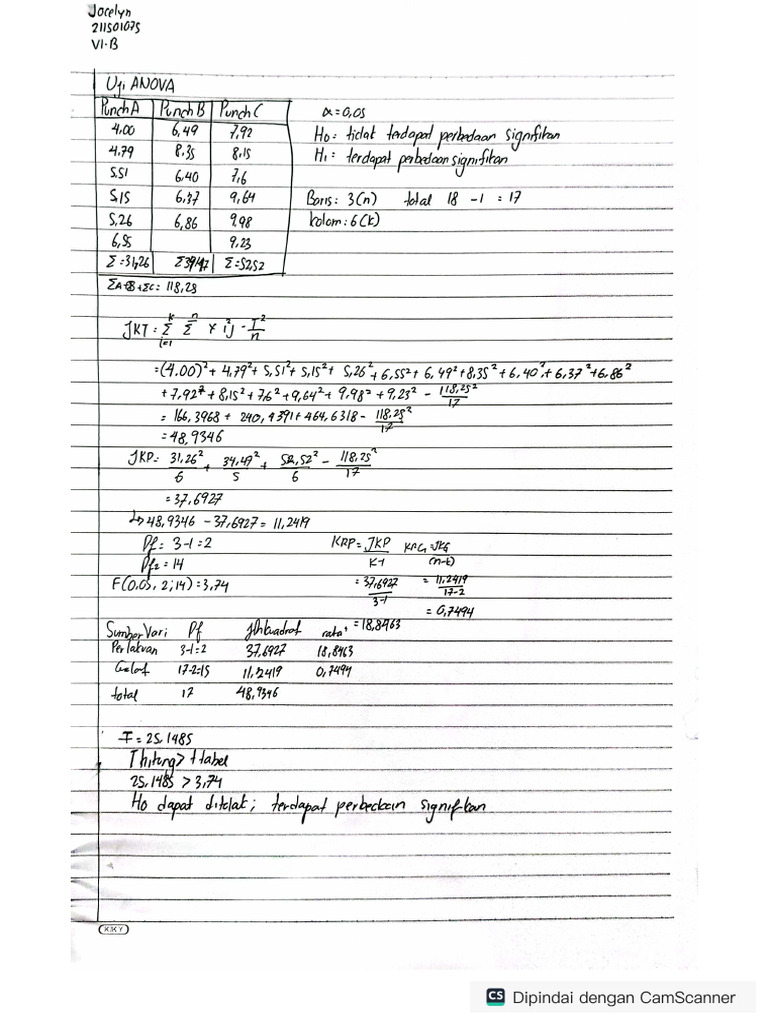 Jocelyn
211501075
VI-B
Uji ANOVA
Punch A Punch B Punch C
4.00 6,49 7,92
4.79 8.35 8,15
5.51 6.40 7,6
5,15 6,37 9,64
5,26 6,86 9.98
6,55 9,23
Σ=31,26 Σ=52,52
α=0,05
H0= tidak terdapat perbedaan signifikan
H1= terdapat perbedaan signifikan
Baris: 3(n) total 18 -1 = 17
kolom: 6(k)
ΣA+B+ΣC= 118,25
JKT = Σ Σ x ij - T²/n
=(4.00)²+ 4,79²+ 5,51²+ 5,15²+ 5,26²+ 6,55²+ 6,49²+8,35²+6,40²+6,37²+6,86²
+7,92²+8,15²+7,6²+9,64²+9,98²+9,23² - 118,25²/17
= 166,3968 + 240,4391+464,6318- 118,25²/17
= 48,9346
JKP= 31,26²/6 + 34,49²/5 + 52,52²/6 - 118,25²/17
= 37,6927
↳ 48,9346 -37,6927= 11,2419
Df= 3-1=2
Df2 = 14
F(0,05, 2;14)=3,74
KRP = JKP/K-1
= 37,6927/3-1
= 18,8463
KRG=JKG/(n-k)
= 11,2419/17-2
= 0,7494
Sumber Vari Df Jlh kuadrat rata²
Perlakuan 3-1=2 37,6927 18,8463
Galat 17-2=15 11,2419 0,7494
total 17 48,9346
F = 25,1485
Thitung> t tabel
25,1485 > 3,74
Ho dapat ditolak; terdapat perbedaan signifikan
KIKY
CS Dipindai dengan CamScanner